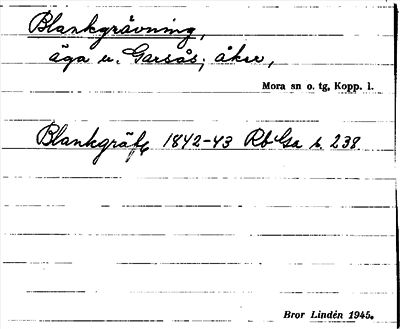 Blankgrävning,
äga u. Garsås; åker,
Mora sn o. tg, Kopp. l.
Blankgräfe 1842-43 Rb Ga s. 238
Bror Lindén 1945.